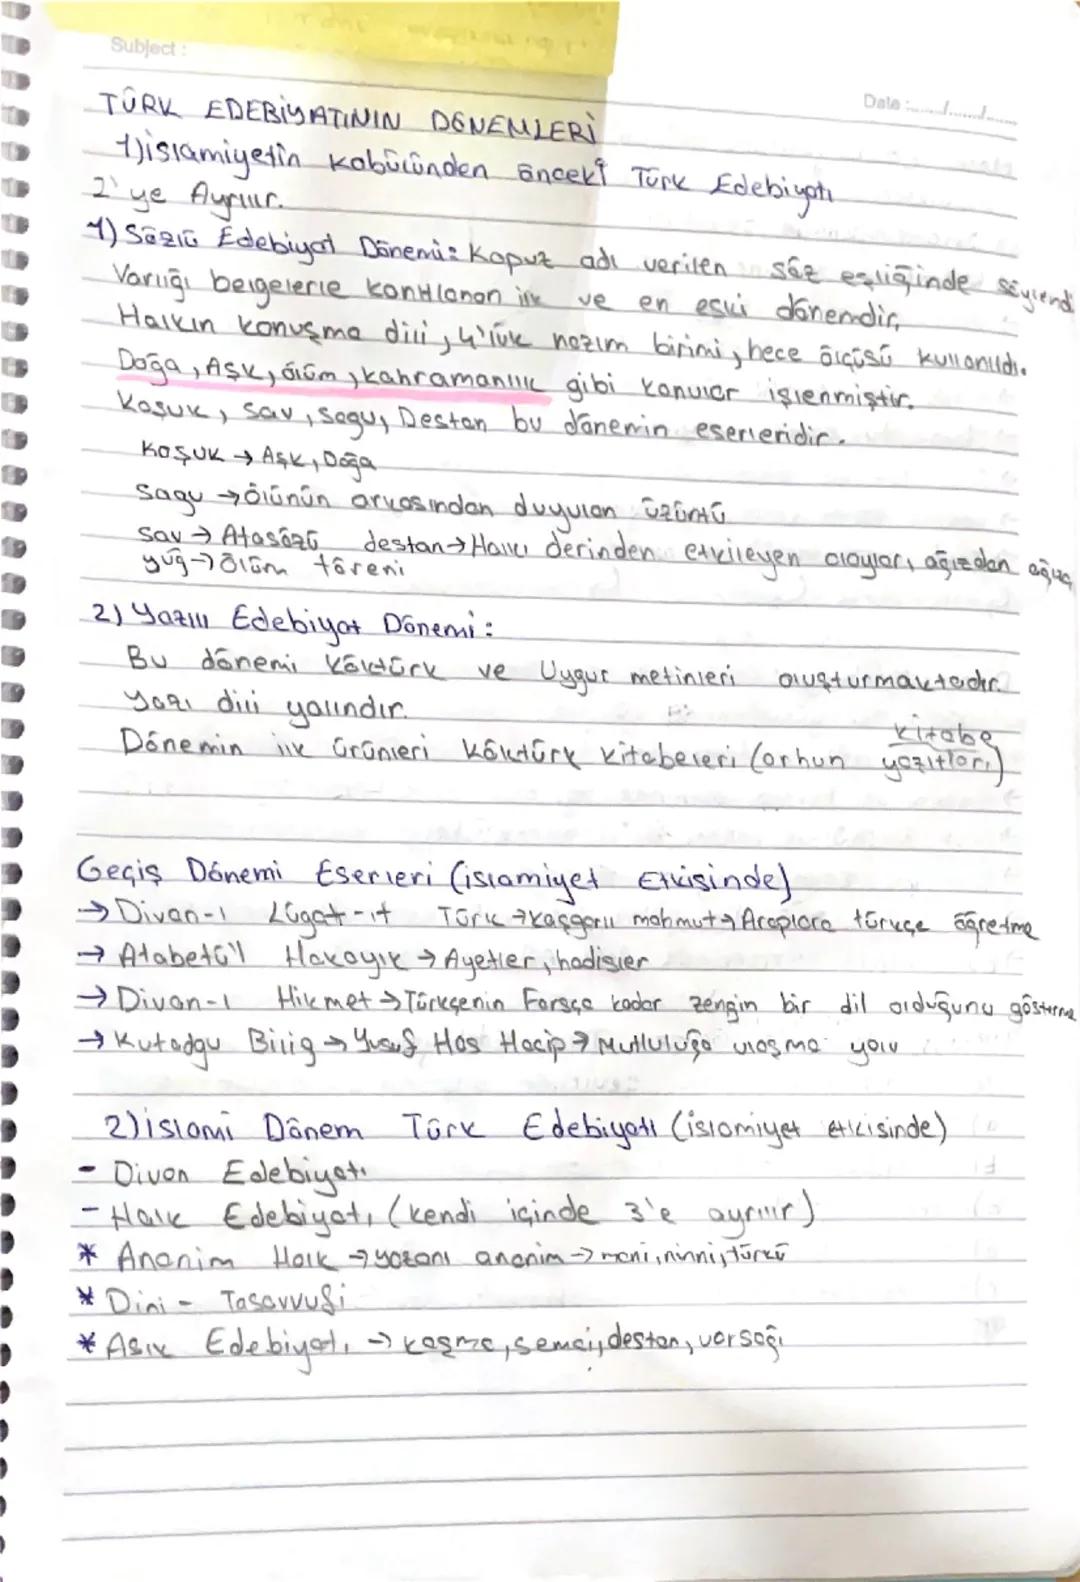 Subject :
Date :....../....../......
TÜRK EDEBİYATININ DÖNEMLERİ
1)islamiyetin kabülünden önceki Türk Edebiyatı
2'ye Ayrılır.
1) Sözlü Edebiyat Dönemi: Kopuz adı verilen saz eşliğinde söylendi
Varlığı belgelerle kanıtlanan ilk ve en eski dönemdir.
Halkın konuşma dili, 4'lük nazım birimi, hece ölçüsü kullanıldı.
Doğa, Aşk, ölüm, kahramanlık gibi konular işlenmiştir.
Koşuk, sav, sagu, Destan bu dönemin eserleridir.
Koşuk → Aşk, Doğa
Sagu → ölünün arkasından duyulan üzüntü
Sav → Atasözü destan → Halkı derinden etkileyen olaylar, ağızdan ağıza
yuğ → ölüm töreni
2) Yazılı Edebiyat Dönemi:
Bu dönemi Köktürk ve Uygur metinleri oluşturmaktadır.
Yazı dili yalındır.
kitabe
Dönemin ilk ürünleri Köktürk kitabeleri (orhun yazıtları)
Geçiş Dönemi Eserleri (islamiyet Etkisinde)
→ Divan-ı Lügat-it Türk → Kaşgarlı mahmut → Araplara türkçe öğretme
→ Atabetü'l Hakayık → Ayetler, hadisler
→ Divan-ı Hikmet → Türkçenin Farsça kadar zengin bir dil olduğunu gösterme
→ Kutadgu Bilig → Yusuf Has Hacip → Mutluluğa ulaşma yolu
2) islami Dönem Türk Edebiyatı (islamiyet etkisinde)
- Divan Edebiyatı
- Halk Edebiyatı (kendi içinde 3'e ayrılır)
* Anonim Halk → yazanı anonim → mani, ninni, türkü
* Dini - Tasavvufi
* Aşık Edebiyatı → koşma, semai, destan, varsağı